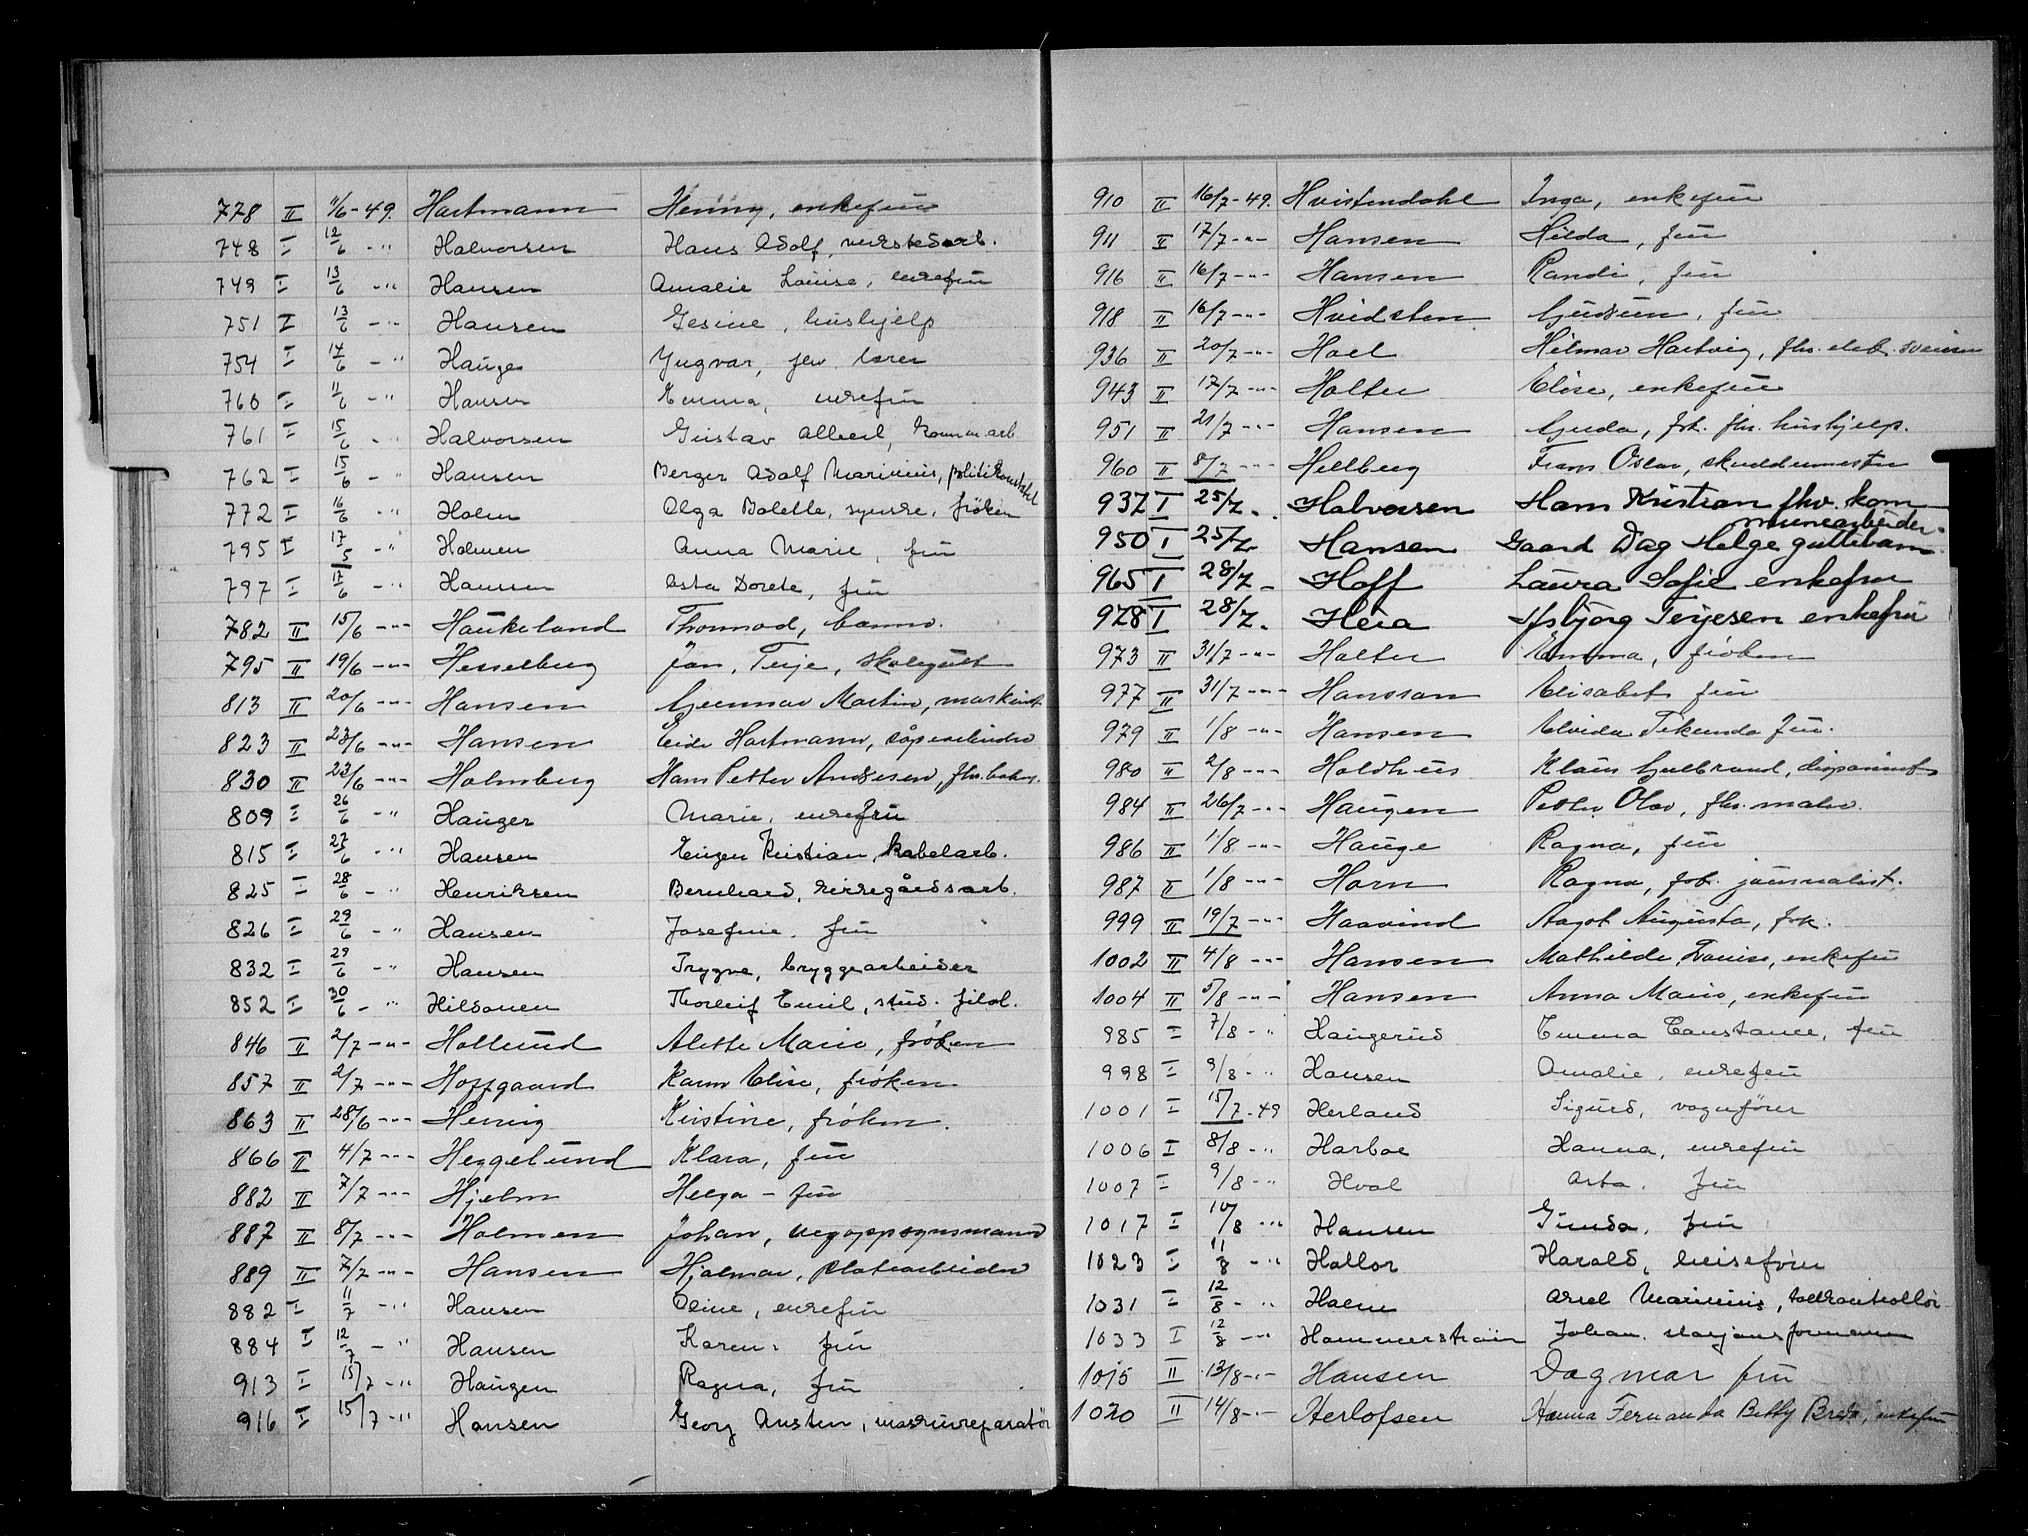 778 II 11/6-49. Hartmann Henny, enkefru
748 I 12/6 -" Halvorsen Hans Adolf, verkstedarb.
749 I 13/6 -" Hansen Amalie Louise, enkefru
751 I 13/6 -" Hansen Gesine, hushjelp
754 I 14/6 -" Hauge Yngvar, fhv. lærer
760 I 11/6 -" Hansen Emma, enkefru
761 I 15/6 -" Halvorsen Gustav Albert, kommarb
762 I 15/6 -" Hansen Berger Adolf Marinius, politikonstabel
772 I 16/6 -" Holm Olga Bolette, syerske, frøken
795 I 17/5 -" Holmen Anna Marie, fru
797 I 17/6 -" Hansen Asta Dorete, fru
782 II 15/6 -"- Haukeland Thormod, barn.
795 II 19/6 -"- Hesselberg Jan, Terje, skolegutt
813 II 20/6 -"- Hansen Gunnar Martin, maskinist
823 II 23/6 -"- Hansen Hartmann, såpearbeider
830 II 23/6 -"- Holmberg Hans Petter Andresen, fhv. baker.
809 I 26/6 -" Hauger Marie, enkefru
815 I 27/6 -" Hansen Eugen Kristian, kabelarb.
825 I 28/6 -" Henriksen Bernhard, kirkegårdsarb.
826 I 29/6 -" Hansen Josefine. fru
832 I 29/6 -" Hansen Trygve, bryggearbeider
852 I 30/6 -" Hildonen Thorleif Emil, stud. filol.
846 II 2/7 -"- Hollund Alette Marie, frøken
857 II 2/7 -"- Hoffgaard Karen Elise, frøken
863 II 28/6 -"- Hennig Kristine, frøken.
866 II 4/7 -"- Heggelund Klara, fru
882 II 7/7 -"- Hjelm Helga - fru
887 II 8/7 -"- Holmen Johan, vegoppsynsmann
889 II 7/7 -"- Hansen Hjalmar, platearbeider
882 I 11/7 -" Hansen Oline, enkefru
884 I 12/7 -" Hansen Karen, fru
913 I 15/7 -" Haugen Ragna, fru
916 I 15/7 -" Hansen Georg Austen, maskinreparatør
910 II 16/7-49. Hvistendahl Inga, enkefru
911 II 17/7 -"- Hansen Hilda, fru
916 II 16/7 -"- Hansen Randi, fru
918 II 16/7 -"- Hvidsten Gudrun, fru
936 II 20/7 -"- Hoel Hilmar Hartvig, fhv. elek. sveiser
943 II 17/7 -"- Holter Elise, enkefru
951 II 21/7 -"- Hansen Gyda, frk. fhv. hushjelp.
960 II 8/7 -"- Hellberg Frans Oskar, skreddermester
937 I 25/7. Halvorsen Hans Kristian fhv. kom
munearbeider.
950 I 25/7. Hansen Gaard Dag Helge guttebarn
965 I 28/7. Hoff Laura Sofie enkefru
978 I 28/7. Heia Isbjørg Terjesen enkefru
973 II 31/7 -"- Holter Emma, frøken
977 II 31/7 -"- Hansson Elisabet, fru
979 II 1/8 -"- Hansen Elvida Tekanda fru.
980 II 2/8 -"- Holdhus Klaus Gulbrand, disponent
984 II 26/7 -"- Haugen Petter Olav, fhv. maler.
986 II 1/8 -"- Hauge Ragna, fru
987 II 1/8 -"- Horn Ragna, frk. journalist.
999 II 19/7 -"- Haavind Aagot Augusta, frk.
1002 II 4/8 -"- Hansen Mathilde Louise, enkefru
1004 II 5/8 -"- Hansen Anna Marie, enkefru
985 I 7/8 -" Haugerud Emma Constance, fru
998 I 9/8 -" Hansen Amalie, enkefru
1001 I 15/7-49 Herland Sigurd, vognfører
1006 I 8/8 -" Harboe Hanna, enkefru
1007 I 9/8 -" Hval Asta. fru
1017 I 10/8 -" Hansen Gunda, fru
1023 I 11/8 -" Hallor Harald, heisefører
1031 I 12/8 -" Holm Arvel Marinius, tollkontrollør
1033 I 12/8 -" Hammerstrøm Johan. formann
1015 II 13/8 -"- Hansen Dagmar fru
1020 II 14/8 -"- Herlofsen Hanna Fernanda Betty Breda, enkefru